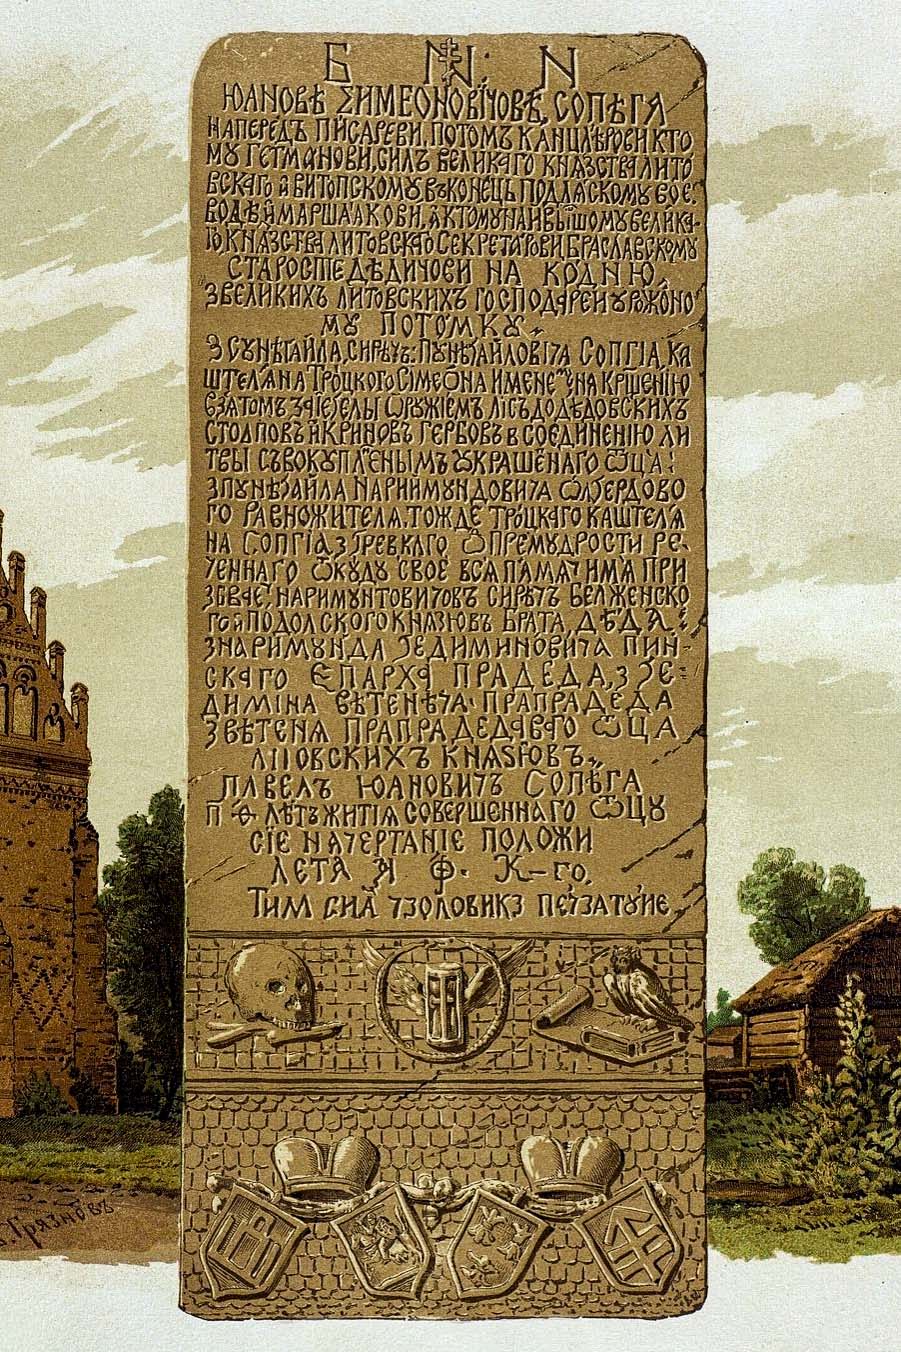 Б N N
ЮАНОВѢ ΣИМЕОНОВИЧОВѢ, СОПѢГЯ
НАПЕРЕДЪ ПИСАРЕВИ, ПОТОМЪ КАНЦЛѢРОВИ КТО
МУ ГЕТМАНОВИ, СИЛЪ ВЕЛИКАГО КНЯЗСТВА ЛИТО
ВСКАГО И ВИТОПСКОМУ ВЪ КОНЕЦЬ ПОДЛЯСКОМУ ВОЕ
ВОДѢ, И МАРШАЛКОВИ, А КТОМУ НАИВЫШОМУ ВЕЛИКА
ГО, КНЯЗСТВА ЛИТОВСКАГО СЕКРЕТАРОВИ БРАСЛАВСКОМУ
СТАРОСТЕ ДѢДИЧОВИ НА КОДНЮ,
ЗВЕЛИКИХЪ ЛИТОВСКИХЪ ГОСПОДАРЕИ УРОЖОНО
МУ ПОТОМКУ
З СУНѢГАЙЛА, СИРѢЧЬ: ПУНѢГАЙЛОВИЧА СОПГІА, КА
ШТЕЛЯНА ТРОЦКОГО СІМЕѠНА ИМЕНЕМЪ НЯ КРІЩЕНІЮ
ВЗЯТОМЪ ѠРУЖІЕМЪ ЛІСЪ ДОДѢДОВСКИХЪ
СТОЛПОВЪ Й КРИНОВЪ ГЕРБОВЪ В СОЕДИНЕНІЮ ЛИ
ТВЫ СЪВОКУПЛЕНЫМЪ УКРАШЕНАГО ѾЦА:
ЗПУНѢГАЙЛА НАРИЙМУНДОВИЧА ѠЛГЕРДОВО
ГО РАВНОЖИТЕЛЯ, ТОЖДЕ ТРОЦКАГО КАШТЕЛЯ
НА СОПГІА З ГРЕВКАГО Ѿ ПРЕМУДРОСТИ РЕ
ЧЕННАГО ѾКУДУ СВОЕ ВСЯ ПАМЯТ ИМЯ ПРИ
НАРИМУНТОВИЧОВЪ СИРѢЧЬ БЕЛЖЕНСКО
ГО Й ПОДОЛСКОГО КНЯЗЮВЪ БРАТА, ДѢДА:
ЗНАРИМУНДА ГЕДИМИНОВИЧА ПИН
СКАГО ЕПАРХА ПРАДЕДА, З ГЕ
ДИМІНА ВѢТЕНѢЧА ПРАПРАДЕДА
ЗВѢТЕНЯ ПРАПРАДЕДАВАГО ѾЦА
ЛІТОВСКИХЪ КНЯЅЮВЪ
ПАВЕЛЪ ЮАНОВИЧЪ СОПѢГА
П Ѳ ЛѢТЪ ЖИТІЯ СОВЕРШЕННАГО ѾЦУ
СІЕ НАЧЕРТАНІЕ ПОЛОЖИ
ЛЕТА Я Ф. К-ГО.
ТИМ СИА ЧЗОЛОВИКЗ ПЕЧЗАТУИЕ
Грязновъ